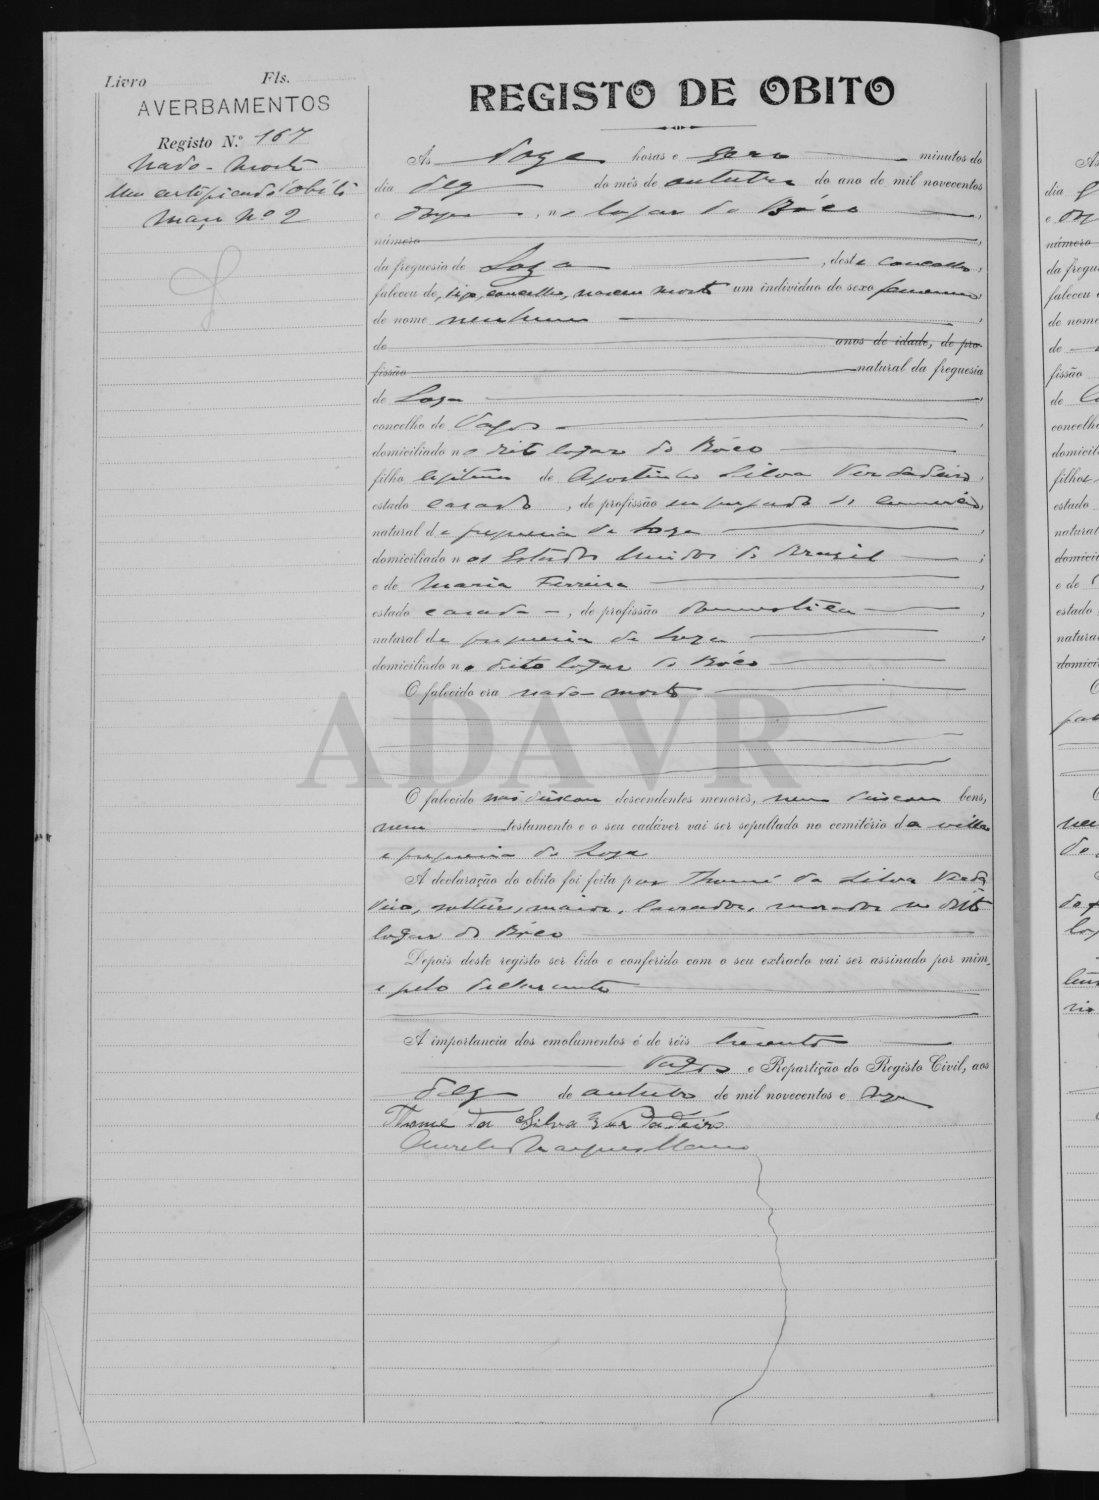 Livro Fls.
AVERBAMENTOS
Registo N.º 167
Nado-morto
Um certificado d'obito
Maço Nº 2
REGISTO DE OBITO
Ás doze horas e zero minutos do
dia dez do mês de outubro do ano de mil novecentos
e doze, no logar do Bôco,
número
da freguesia de Soza, deste concelho,
faleceu de, digo, concelho, nasceu morto um individuo do sexo femenino,
de nome nenhum,
de anos de idade, de pro-
fissão natural da freguesia
de Soza,
concelho de Vagos
domiciliado no dito logar do Bôco
filho legitimo de Agostinho Silva Verdadeiro,
estado casado, de profissão empregado do comercio,
natural da freguesia de Soza,
domiciliado nos Estados Unidos do Brazil;
e de Maria Ferreira,
estado casada, de profissão domestica,
natural da freguesia de Soza,
domiciliado no dito logar do Bôco
O falecido era nado-morto
ADAVR
O falecido não deixou descendentes menores, nem deixou bens,
nem testamento e o seu cadáver vai ser sepultado no cemitério da villa
e freguesia de Soza
A declaração do obito foi feita por Thomé da Silva Verda-
deiro, solteiro, maior, lavrador, morador no dito
logar do Bôco
Depois deste registo ser lido e conferido com o seu extracto vai ser assinado por mim,
e pelo declarante
A importancia dos emolumentos é de réis trezentos
Vagos e Repartição do Registo Civil, aos
dez de outubro de mil novecentos e doze
Thomé da Silva Verdadeiro
Aurelio Marques Mano